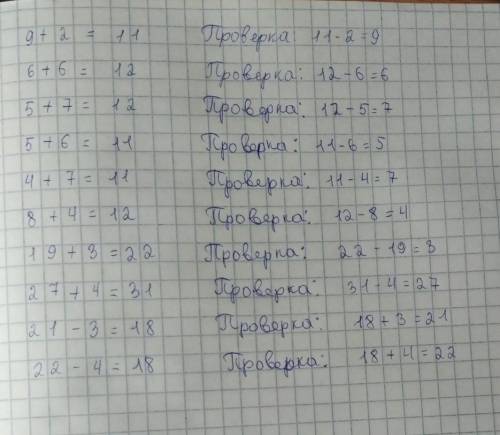 9 + 2 = 11 Проверка: 11 - 2 = 9
6 + 6 = 12 Проверка: 12 - 6 = 6
5 + 7 = 12 Проверка: 12 - 5 = 7
5 + 6 = 11 Проверка: 11 - 6 = 5
4 + 7 = 11 Проверка: 11 - 4 = 7
8 + 4 = 12 Проверка: 12 - 8 = 4
19 + 3 = 22 Проверка: 22 - 19 = 3
27 + 4 = 31 Проверка: 31 - 4 = 27
21 - 3 = 18 Проверка: 18 + 3 = 21
22 - 4 = 18 Проверка: 18 + 4 = 22